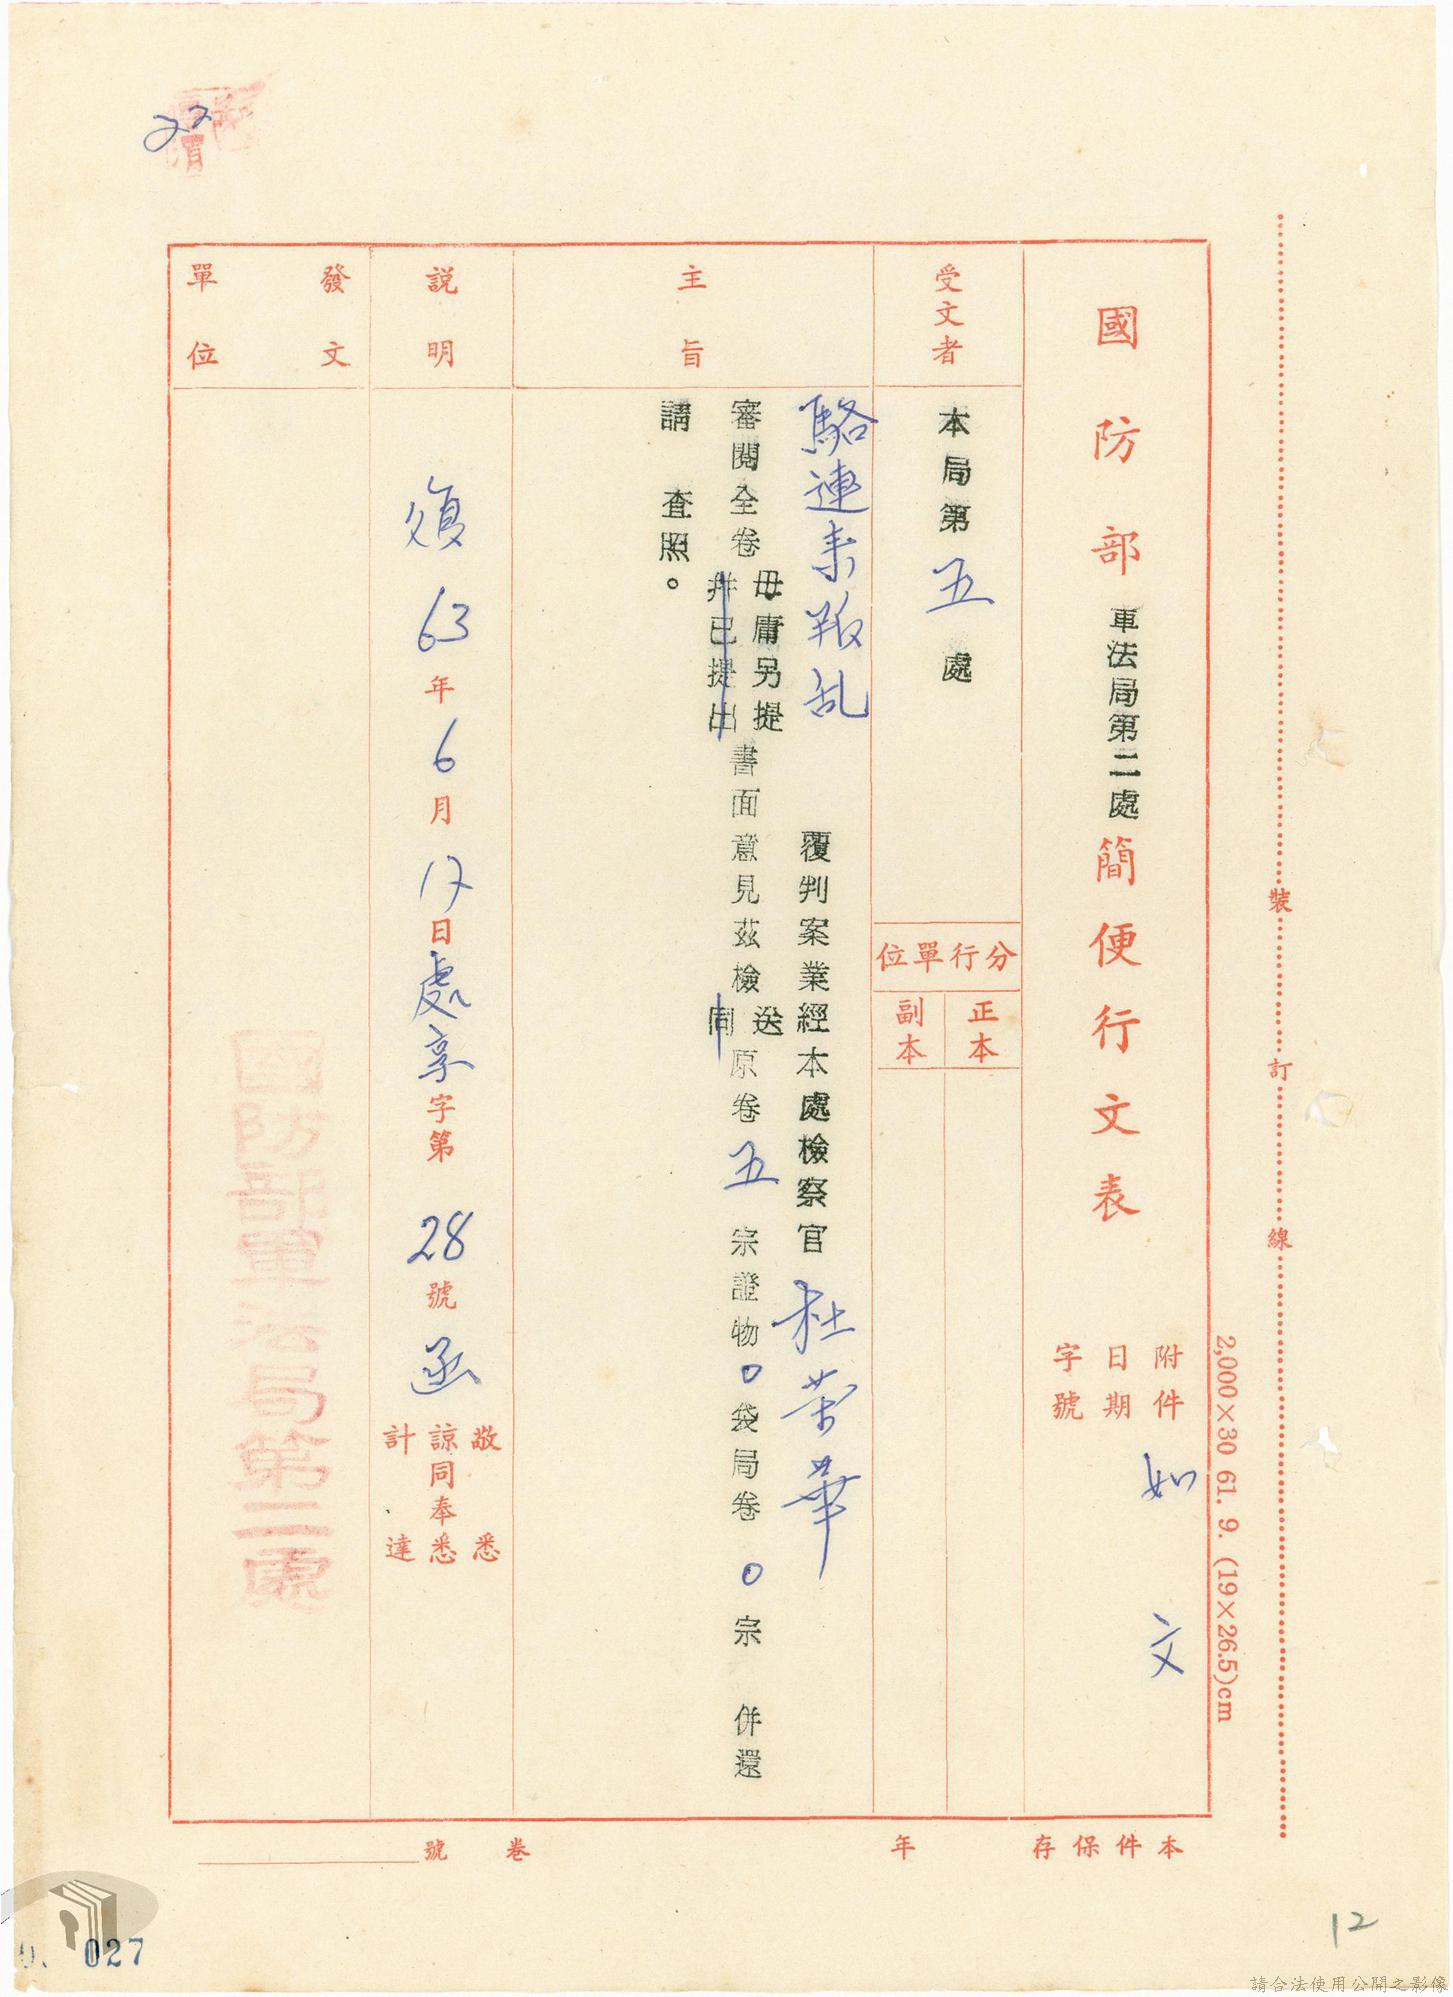 裝訂線
2,000×30 61. 9. (19×26.5)cm
國防部軍法局第二處簡便行文表
附件 如文
日期
字號
受文者
本局第五處
分行單位
正本
副本
主旨
駱連來叛乱 覆判案業經本處檢察官杜荣華
審閱全卷毋庸另提書面意見茲檢送原卷五宗證物0袋局卷0宗 併還
幷已提出
同
請 查照。
說明
復63年6月17日處享字第28號函
敬悉
諒同奉悉
計達
發文單位
國防部軍法局第二處
本件保存 年 卷號
12
027
請合法使用公開之影像